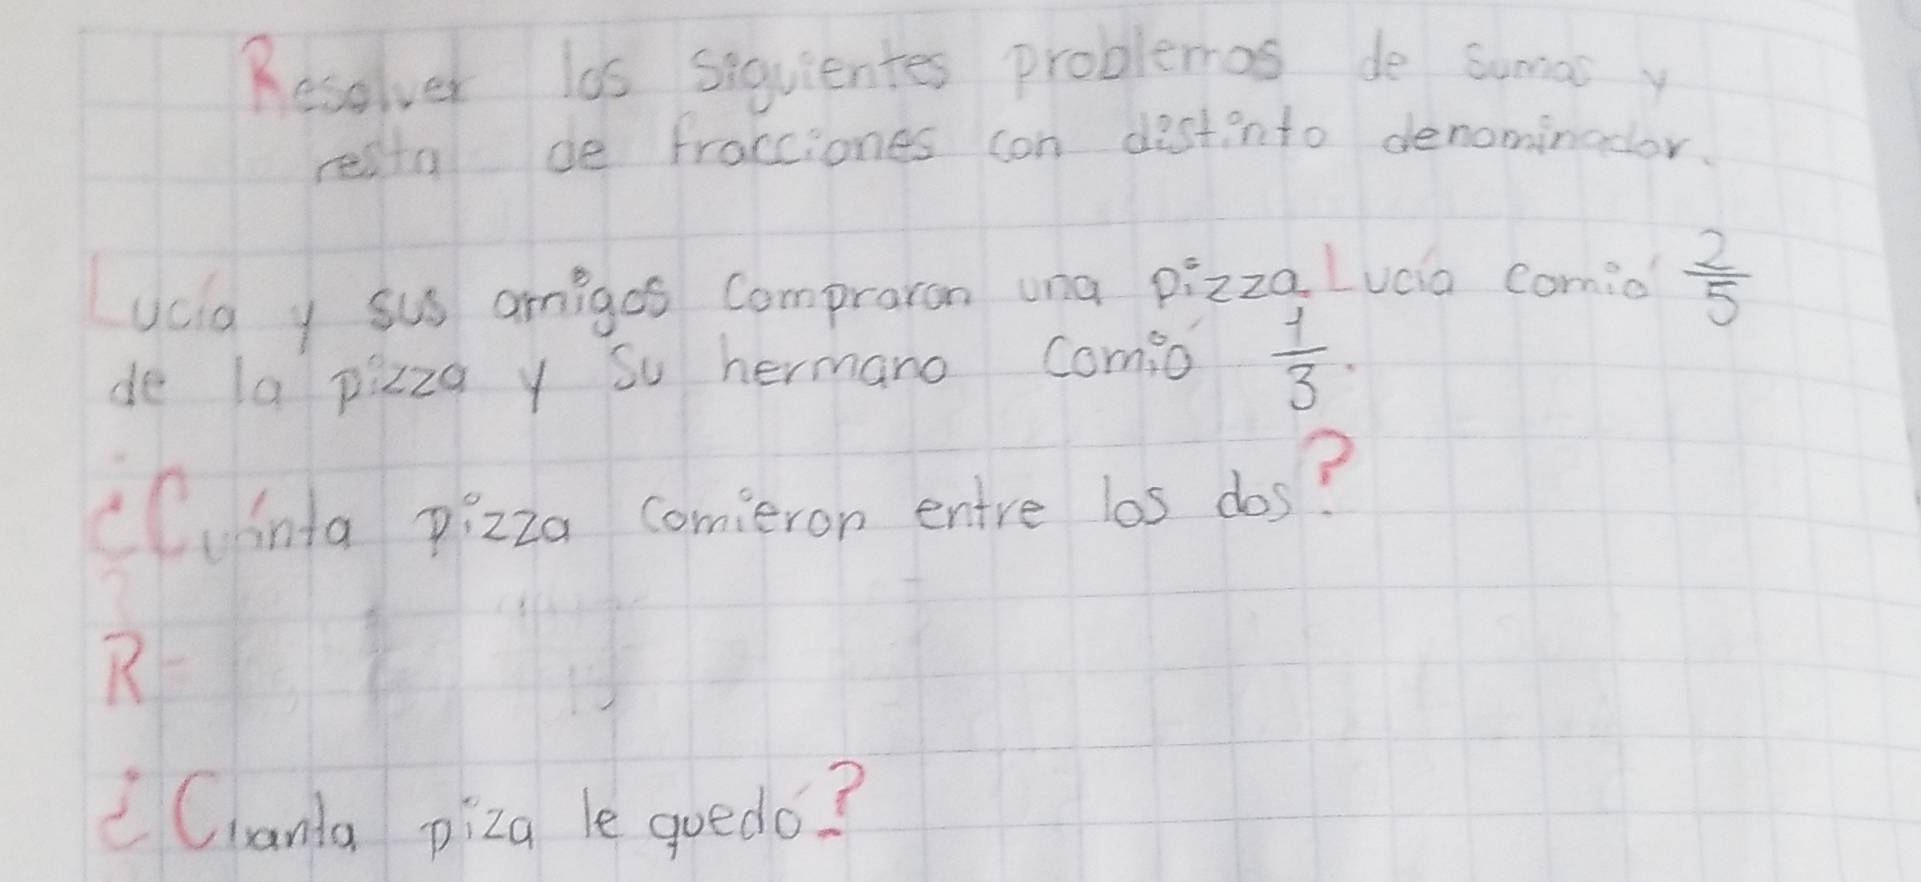 Resolver los siguientes problemas de sumas y
resta de fracciones con distinto denominador.
Lucía y sus amigos compraron una pizza. Lucía comió 2/5
de la pizza y su hermano comió 1/3.
¿Cuánta pizza comieron entre los dos?
R=
¿Cuanta piza le quedó?